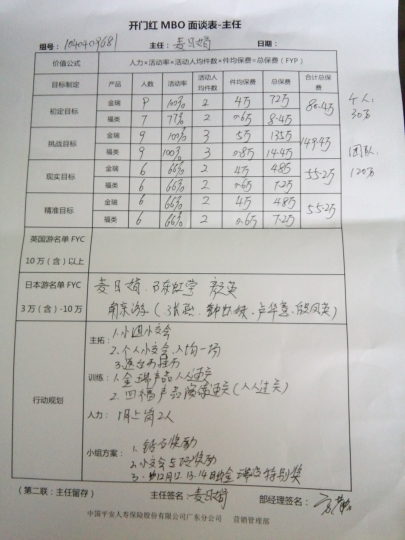 开门红 MBO 面谈表-主任
组号: 1040409681 主任: 麦日娟 日期:
价值公式 人力*活动率*活动人均件数*件均保费=总保费（FYP）
目标制定 产品 人数 活动率 活动人均件数 件均保费 总保费 合计总保费
初定目标 金瑞 9 100% 2 4万 72万 80.4万
福类 7 77% 2 0.6万 8.4万
挑战目标 金瑞 9 100% 3 5万 135万 149.4万
福类 9 100% 2 0.8万 14.4万
现实目标 金瑞 6 66% 2 4万 48万 55.2万
福类 6 66% 2 0.6万 7.2万
精准目标 金瑞 6 66% 2 4万 48万 55.2万
福类 6 66% 2 0.6万 7.2万
个人:
30万
团队:
120万
英国游名单 FYC
10 万（含）以上
日本游名单 FYC
3 万（含）-10 万
麦日娟
南京游
行动规划
主拓: 1.小组小交会
2.个人小交会 人均一场
训练: 1.金瑞产品人人过关
2.四福产品 过关（人人过关）
人力: 1月上岗2人
小组方案: 1.转介奖励
2.小交会 奖励
3. 12月12.13.14日 金瑞 特别奖
（第二联：主任留存） 主任签名: 麦日娟 部经理签名:
中国平安人寿保险股份有限公司广东分公司 营销管理部